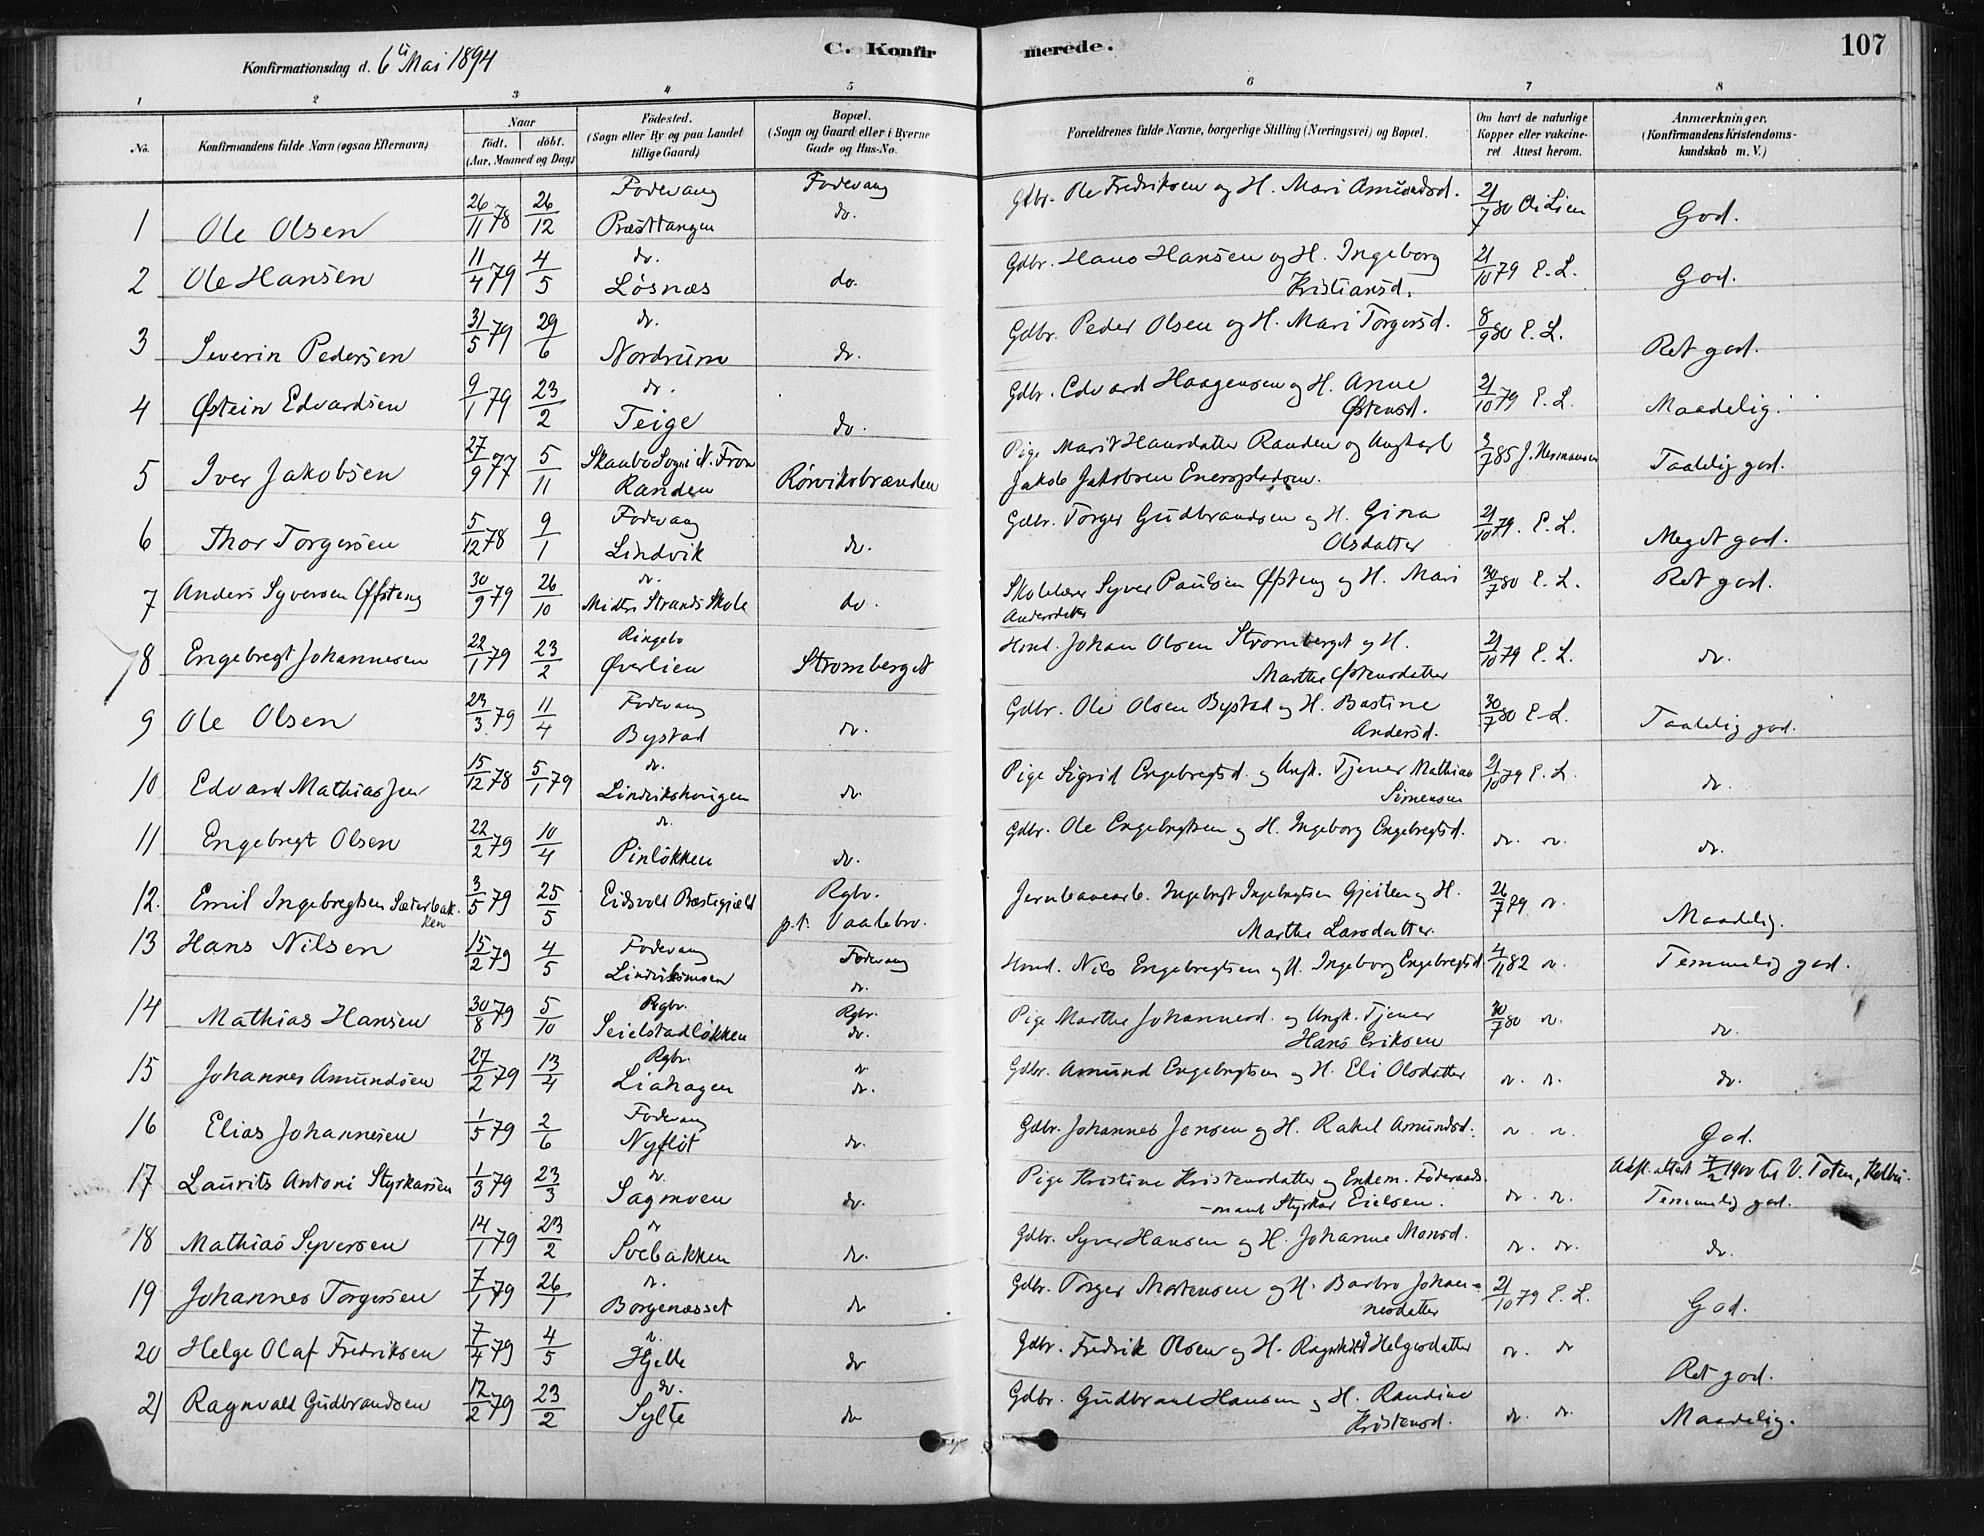 Konfirmationsdag d. 6te Mai 1894
C. Konfirmerede.
107
1 2 3 4 5 6 7 8
No. | Konfirmandens fulde Navn (ogsaa Efternavn) | Naar födt. döbt. (Aar, Maaned og Dag) | Födested. (Sogn eller By og paa Landet tillige Gaard) | Bopæl. (Sogn og Gaard eller i Byerne Gade og Hus-No. | Forældrenes fulde Navne, borgerlige Stilling (Næringsvei) og Bopæl. | Om havt de naturlige Kopper eller vakcineret Attest herom. | Anmærkninger. (Konfirmandens Kristendomskundskab m. V.)
1 Ole Olsen 26/11 78 26/12 Fodevang Præsttangen Fodevang do. Gdbr. Ole Fredriksen og H. Mari Amundsd. 21/7 80 O. Lien God.
2 Ole Hansen 11/4 79 4/5 do. Løsnæs do. Gdbr. Hans Hansen og H. Ingeborg Kristiansd. 21/10 79 E. L. God.
3 Severin Pedersen 31/5 79 29/6 do. Nordrum do. Gdbr. Peder Olsen og H. Mari Torgersd. 8/9 80 E. L. Ret god.
4 Østein Edvardsen 9/1 79 23/2 do. Teige do. Gdbr. Edvard Haagensen og H. Anne Østensd. 21/10 79 E. L. Maadelig.
5 Iver Jakobsen 27/9 77 5/11 Skaabo Sogn i N. Fron Randen Rørviksbrænden Pige Marit Hansdatter Randen og Ungkarl Jakob Jakobsen 3/7 85 J. Hermansen Taalelig god.
6 Thor Torgersen 5/12 78 9/1 Fodevang Lindvik do. Gdbr. Torger Gudbrandsen og H. Gina Olsdatter 21/10 79. E. L. Meget god.
7 Anders Syversen Øfsteng 30/9 79 26/10 do. Midtre Strands Skole do. Skolelærer Syver Paulsen Øfsteng og H. Mari Andersdatter 30/7 80 E. L. Ret god.
8 Engebregt Johannesen 22/1 79 23/2 Ringebo Øverlien Stromberget Hmd. Johan Olsen Stromberget og H. Marthe Østensdatter 21/10 79 E. L. do.
9 Ole Olsen 23/3 79 11/4 Fodevang Bystad do. Gdbr. Ole Olsen Bystad og H. Bastine Andersd. 30/7 80 E. L. Taalelig god.
10 Edvard Mathiassen 15/12 78 5/1 79 do. Lindvikshougen do. Pige Sigrid Engebregtsd. og Ungk. Tjener Mathias Simensen 21/10 79 E. L. do.
11 Engebregt Olsen 22/2 79 10/4 do. Pinløkken do. Gdbr. Ole Engebregtsen og H. Ingeborg Engebregtsd. do. do. do.
12. Emil Ingebregtsen Sæterbakken 3/5 79 25/5 Eidsvold Præstegjæld Rgbr. p.t. Vaalebro. Jernbanearb. Ingebregt Ingebregtsen Gjeilen og H. Marthe Larsdatter. 26/7 79 do. Maadelig.
13 Hans Nilsen 15/2 79 4/5 Fodevang Fodevang do. Hmd. Nils Engebregtsen og H. Ingeborg Engebregtsd 4/11 82 do. Temmelig god.
14 Mathias Hansen 30/8 79 5/10 Rgbr. Seielstadløkken Rgbr. do. Pige Marthe Johannesd. og Ungk. Tjener Hans Eriksen 30/7 80 do. do.
15 Johannes Amundsen 27/2 79 13/4 Rgbr. Liahagen do. do. Gdbr. Amund Engebregtsen og H. Eli Olsdatter do. do. do.
16 Elias Johannesen 1/5 79 2/6 Fodevang Nyfløt do. Gdbr. Johannes Jensen og H. Rakel Amundsd. do. do. God.
17 Laurits Antoni Styrkarsen 1/3 79 23/3 do. Sagmoen do. Pige Kristine Kristensdatter og Enkem. Føderaadsmand Styrkar Eielsen. do. do. Udfl.attest 1900 til V. Toten, Kolbu. Temmelig god.
18 Mathias Syversen 14/1 79 23/2 do Svebakken do. Gdbr. Syver Hansen og H. Johanne Monsd. do. do. do.
19 Johannes Torgersen 7/1 79 26/1 do. Borgenæsset do Gdbr. Torger Mortensen og H. Barbro Johannesdatter 21/10 79 E. L. God.
20 Helge Olaf Fredriksen 7/4 79 4/5 do. Hjelle do Gdbr. Fredrik Olsen og H. Ragnhild Helgesdatter do. do Ret god.
21 Ragnvald Gudbrandsen 12/2 79 23/2 do. Sylte do Gdbr. Gudbrand Hansen og H. Randine Kristensd. do. do. Maadelig.